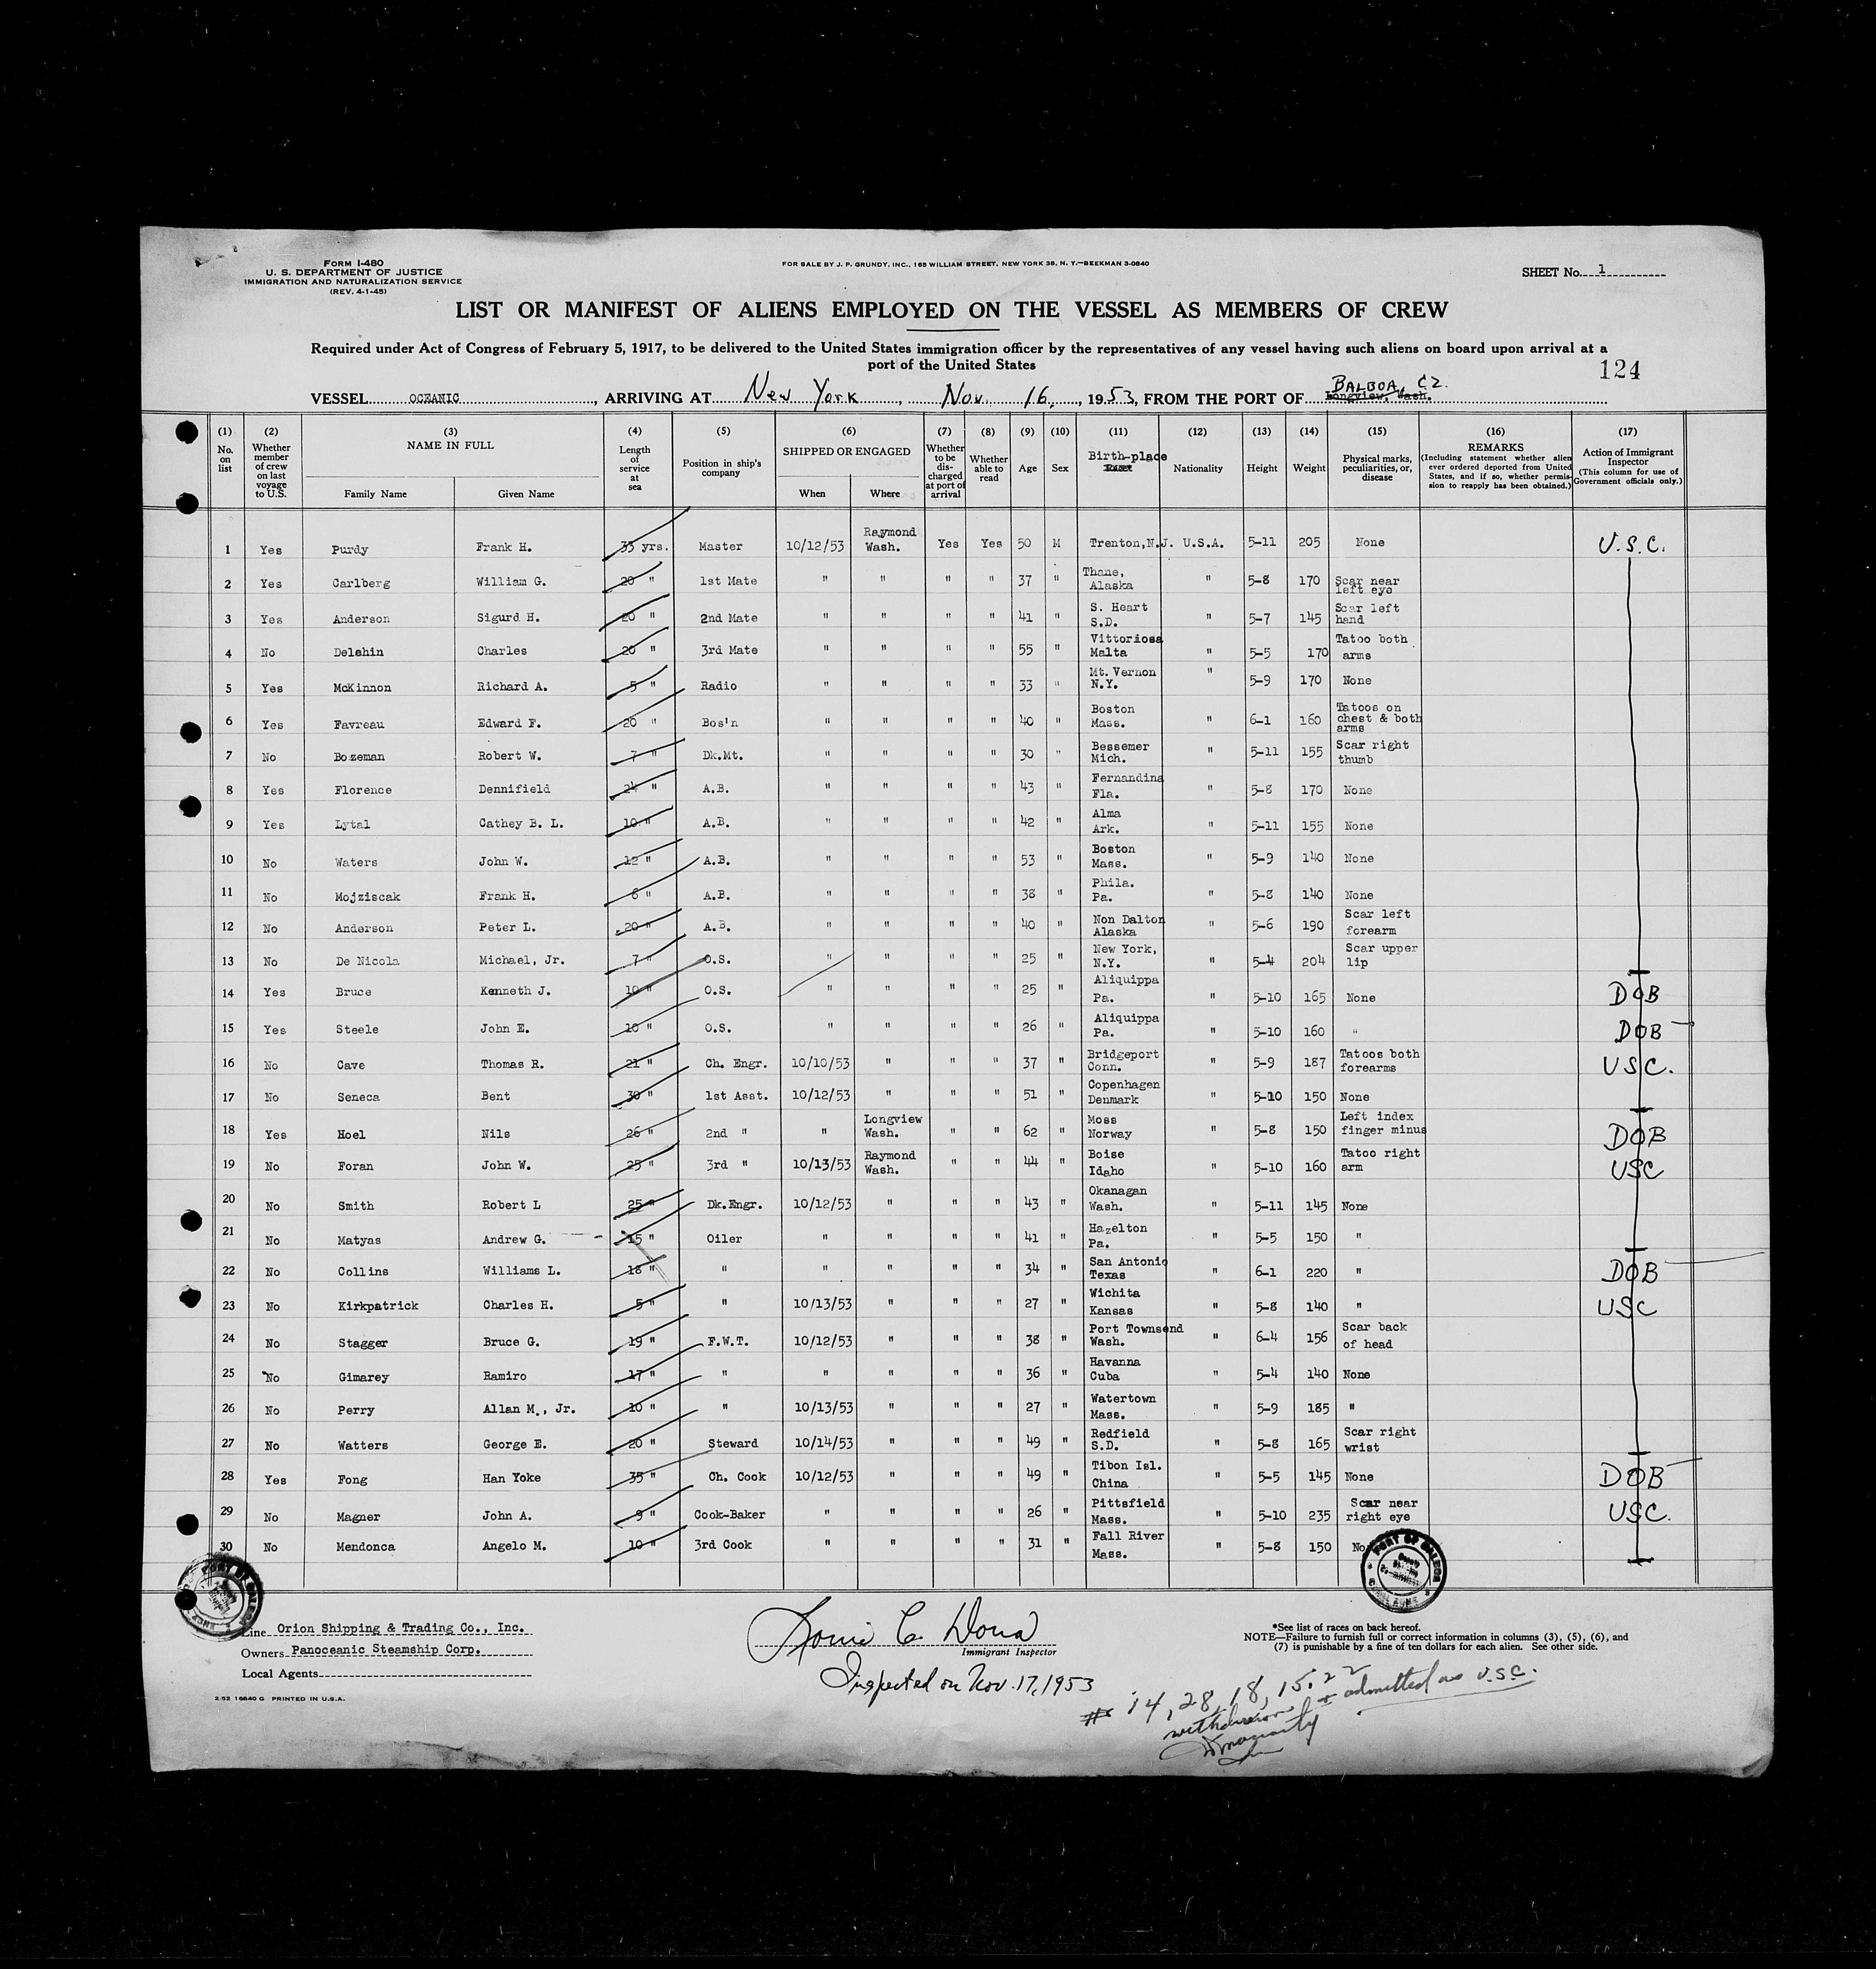 FORM I-480
U. S. DEPARTMENT OF JUSTICE
IMMIGRATION AND NATURALIZATION SERVICE
(REV. 4-1-45)
FOR SALE BY J. P. GRUNDY, INC., 165 WILLIAM STREET, NEW YORK 38, N. Y.—BEEKMAN 3-0840
SHEET No. 1
LIST OR MANIFEST OF ALIENS EMPLOYED ON THE VESSEL AS MEMBERS OF CREW
Required under Act of Congress of February 5, 1917, to be delivered to the United States immigration officer by the representatives of any vessel having such aliens on board upon arrival at a
port of the United States
124
VESSEL OCEANIC, ARRIVING AT New York, Nov. 16, 1953, FROM THE PORT OF BALBOA, CZ. Longview, Wash.
(1) No. on list (2) Whether member of crew on last voyage to U.S. (3) NAME IN FULL Family Name Given Name (4) Length of service at sea (5) Position in ship's company (6) SHIPPED OR ENGAGED When Where (7) Whether to be discharged at port of arrival (8) Whether able to read (9) Age (10) Sex (11) Birth-place (12) Nationality (13) Height (14) Weight (15) Physical marks, peculiarities, or, disease (16) REMARKS (Including statement whether alien ever ordered deported from United States, and if so, whether permission to reapply has been obtained.) (17) Action of Immigrant Inspector (This column for use of Government officials only.)
1 Yes Purdy Frank H. 33 yrs. Master 10/12/53 Raymond Wash. Yes Yes 50 M Trenton, N.J. U.S.A. 5-11 205 None U.S.C.
2 Yes Carlberg William G. 20 " 1st Mate " " " " 37 " Thane, Alaska " 5-8 170 Scar near left eye
3 Yes Anderson Sigurd H. 20 " 2nd Mate " " " " 41 " S. Heart S.D. " 5-7 145 Scar left hand
4 No Delahin Charles 20 " 3rd Mate " " " " 55 " Vittoriosa Malta " 5-5 170 Tatoo both arms
5 Yes McKinnon Richard A. 5 " Radio " " " " 33 " Mt. Vernon N.Y. " 5-9 170 None
6 Yes Favreau Edward F. 20 " Bos'n " " " " 40 " Boston Mass. " 6-1 160 Tatoos on chest & both arms
7 No Bozeman Robert W. 7 " Dk.Mt. " " " " 30 " Bessemer Mich. " 5-11 155 Scar right thumb
8 Yes Florence Dennifield 24 " A.B. " " " " 43 " Fernandina Fla. " 5-8 170 None
9 Yes Lytal Cathey B. L. 10 " A.B. " " " " 42 " Alma Ark. " 5-11 155 None
10 No Waters John W. 12 " A.B. " " " " 53 " Boston Mass. " 5-9 140 None
11 No Mojziscak Frank H. 6 " A.B. " " " " 38 " Phila. Pa. " 5-8 140 None
12 No Anderson Peter L. 20 " A.B. " " " " 40 " Non Dalton Alaska " 5-6 190 Scar left forearm
13 No De Nicola Michael, Jr. 7 " O.S. " " " " 25 " New York, N.Y. " 5-4 204 Scar upper lip
14 Yes Bruce Kenneth J. 10 " O.S. " " " " 25 " Aliquippa Pa. " 5-10 165 None DOB
15 Yes Steele John E. 10 " O.S. " " " " 26 " Aliquippa Pa. " 5-10 160 " DOB
16 No Cave Thomas R. 21 " Ch. Engr. 10/10/53 " " " 37 " Bridgeport Conn. " 5-9 187 Tatoos both forearms USC.
17 No Seneca Bent 30 " 1st Asst. 10/12/53 " " " 51 " Copenhagen Denmark " 5-10 150 None
18 Yes Hoel Nils 26 " 2nd " " Longview Wash. " " 62 " Moss Norway " 5-8 150 Left index finger minus DOB
19 No Foran John W. 25 " 3rd " 10/13/53 Raymond Wash. " " 44 " Boise Idaho " 5-10 160 Tatoo right arm USC
20 No Smith Robert L 25 " Dk.Engr. 10/12/53 " " " 43 " Okanagan Wash. " 5-11 145 None
21 No Matyas Andrew G. 15 " Oiler " " " " 41 " Hazelton Pa. " 5-5 150 "
22 No Collins Williams L. 18 " " " " " " 34 " San Antonio Texas " 6-1 220 " DOB
23 No Kirkpatrick Charles H. 5 " " 10/13/53 " " " 27 " Wichita Kansas " 5-8 140 " USC
24 No Stagger Bruce G. 19 " F.W.T. 10/12/53 " " " 38 " Port Townsend Wash. " 6-4 156 Scar back of head
25 No Gimarey Ramiro 17 " " " " " " 36 " Havanna Cuba " 5-4 140 None
26 No Perry Allan M., Jr. 10 " " 10/13/53 " " " 27 " Watertown Mass. " 5-9 185 "
27 No Watters George E. 20 " Steward 10/14/53 " " " 49 " Redfield S.D. " 5-8 165 Scar right wrist
28 Yes Fong Han Yoke 35 " Ch. Cook 10/12/53 " " " 49 " Tibon Isl. China " 5-5 145 None DOB
29 No Magner John A. 9 " Cook-Baker " " " " 26 " Pittsfield Mass. " 5-10 235 Scar near right eye USC.
30 No Mendonca Angelo M. 10 " 3rd Cook " " " " 31 " Fall River Mass. " 5-8 150 No
PORT OF BALBOA
Line Orion Shipping & Trading Co., Inc.
Owners Panoceanic Steamship Corp.
Local Agents
2-52 16840 G PRINTED IN U.S.A.
Immigrant Inspector
Inspected on Nov. 17, 1953
*See list of races on back hereof.
NOTE—Failure to furnish full or correct information in columns (3), (5), (6), and
(7) is punishable by a fine of ten dollars for each alien. See other side.
# 14, 28, 18, 15, 22
admitted as U.S.C.